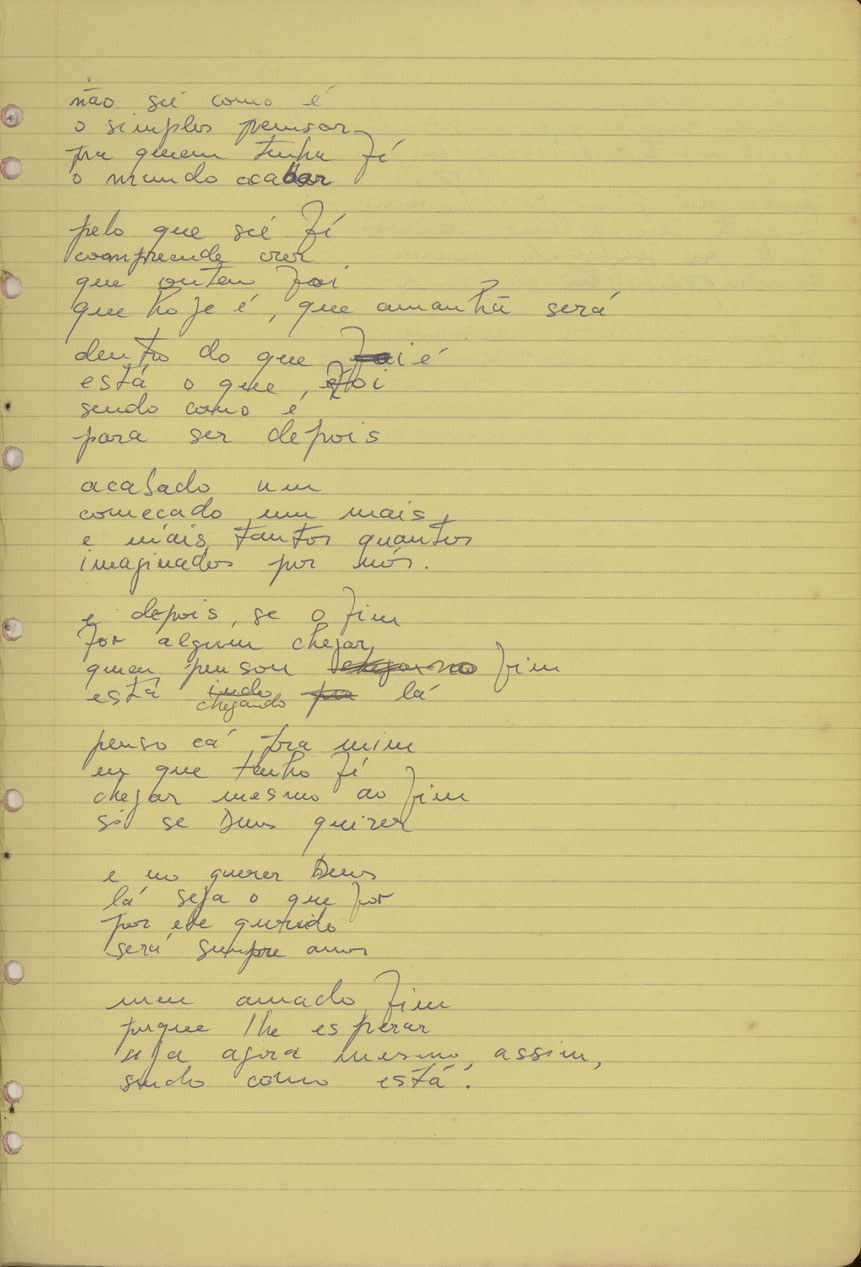 não sei como é
o simples pensar
pra quem tenha fé
o mundo acabar
pelo que sei fé
compreende crer
que ontem foi
que hoje é, que amanhã será
dentro do que é
está o que foi
sendo como é
para ser depois
acabado um
começado um mais
e mais tantos quantos
imaginados por nós.
e depois, se o fim
for algum chegar,
quem pensou fim
está indo chegando lá
penso cá pra mim
em que tenho fé
chegar mesmo ao fim
só se Deus quizer
e no querer Deus
lá seja o que for
por ele querido
será sempre amor
meu amado fim
porque lhe esperar
seja agora mesmo, assim,
sendo como está.